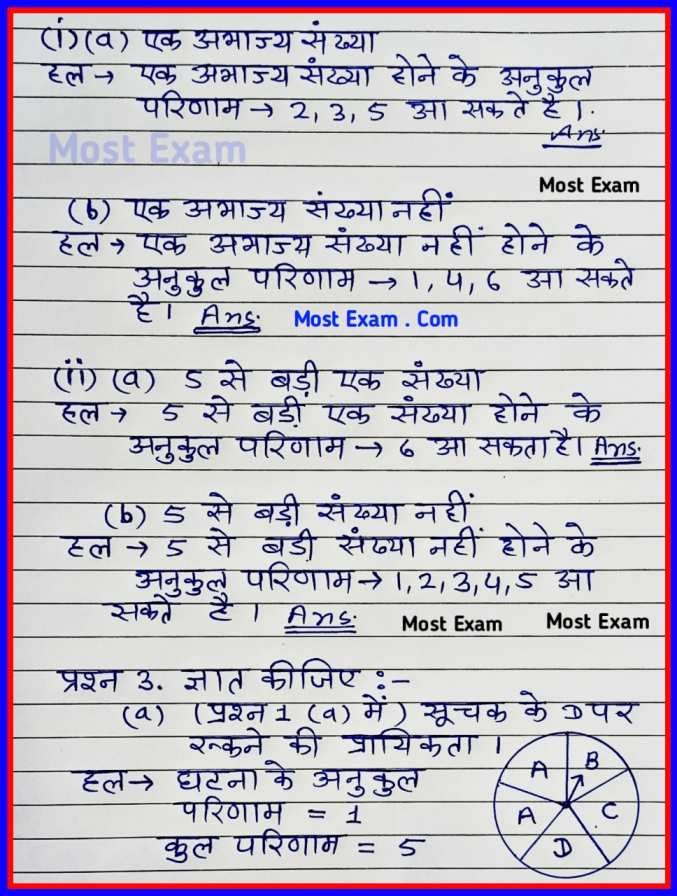 (i)(a) एक अभाज्य संख्या
हल → एक अभाज्य संख्या होने के अनुकुल
परिणाम → 2, 3, 5 आ सकते है ।.
Ans.
Most Exam
Most Exam
(b) एक अभाज्य संख्या नहीं
हल → एक अभाज्य संख्या नहीं होने के
अनुकुल परिणाम → 1, 4, 6 आ सकते
है । Ans. Most Exam . Com
(ii) (a) 5 से बड़ी एक संख्या
हल → 5 से बड़ी एक संख्या होने के
अनुकुल परिणाम → 6 आ सकता है। Ans.
(b) 5 से बड़ी संख्या नहीं
हल → 5 से बड़ी संख्या नहीं होने के
अनुकुल परिणाम → 1,2,3,4,5 आ
सकते है । Ans. Most Exam Most Exam
प्रश्न 3. ज्ञात कीजिए :-
(a) (प्रश्न 1 (a) में) सूचक के D पर
रुकने की प्रायिकता ।
हल → घटना के अनुकुल
परिणाम = 1
कुल परिणाम = 5
A B
A C
D